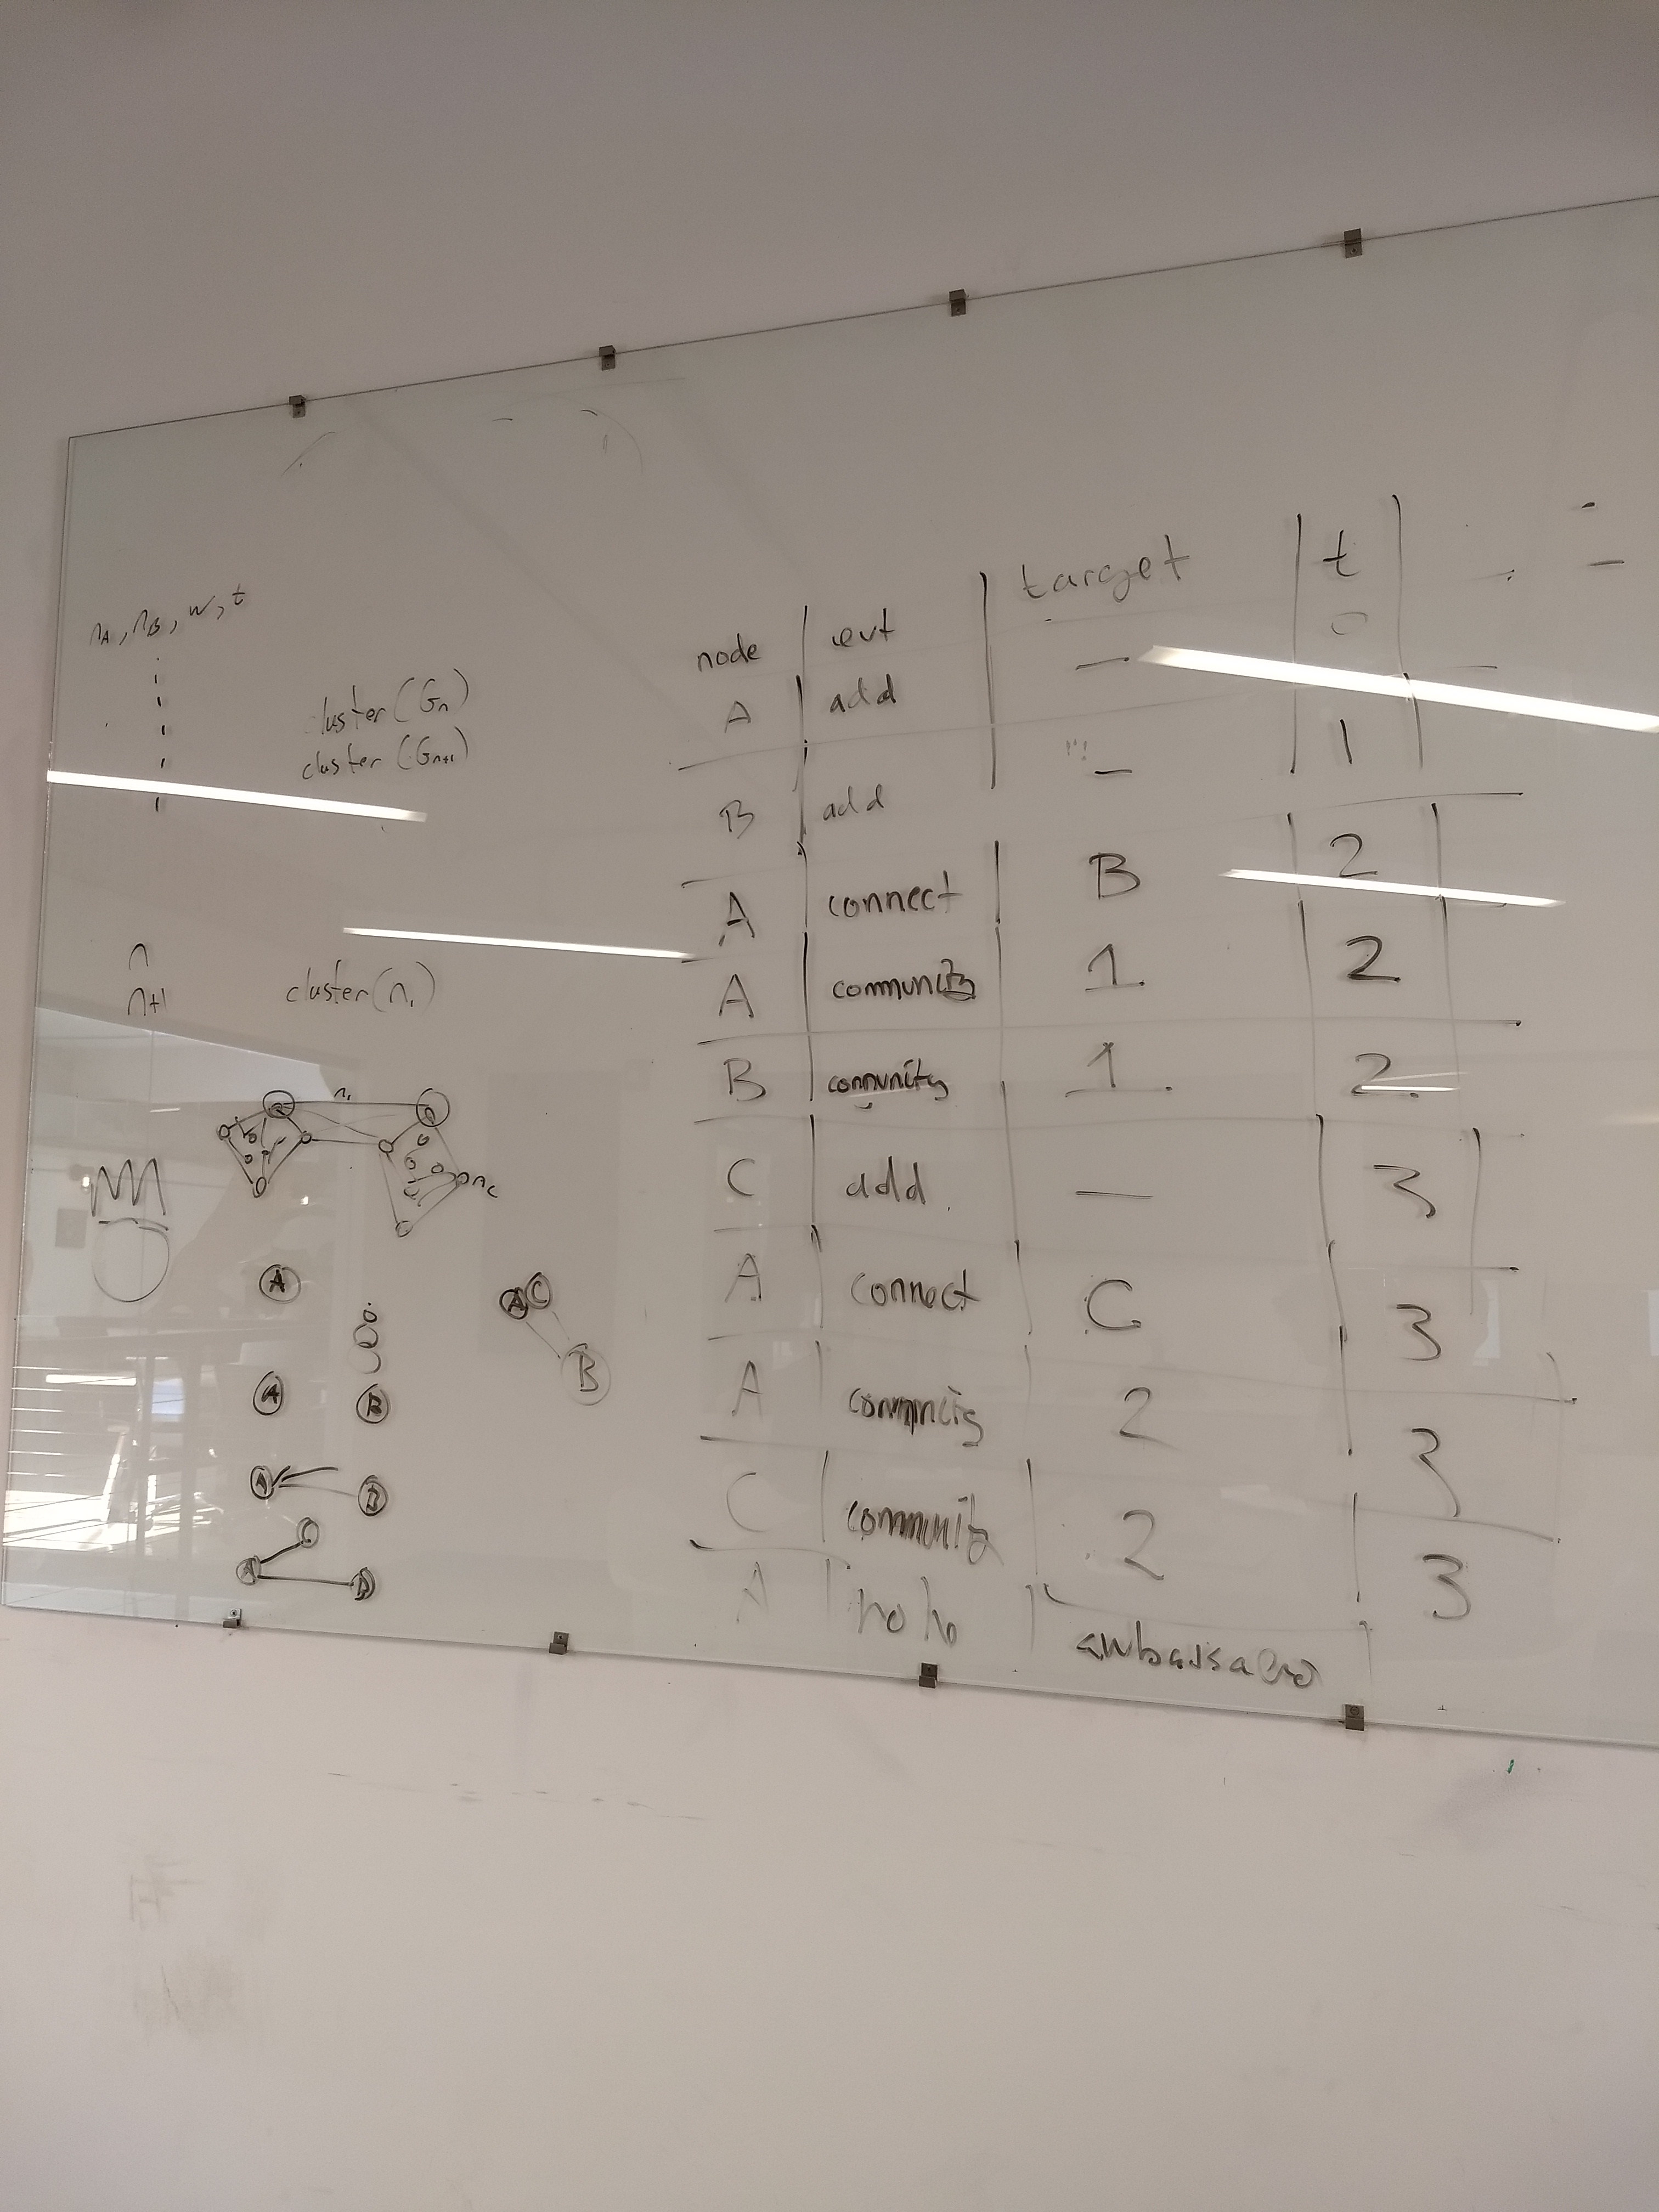 n_A, n_B, w, t
cluster (G_n)
cluster (G_n+1)
n
n+1
cluster(n_1)
n_1
n_c
A
A B
A B
A C B
A C
B
node evt target t
A add — 0
B add — 1
A connect B 2
A community 1 2
B community 1 2
C add — 3
A connect C 3
A community 2 3
C community 2 3
A